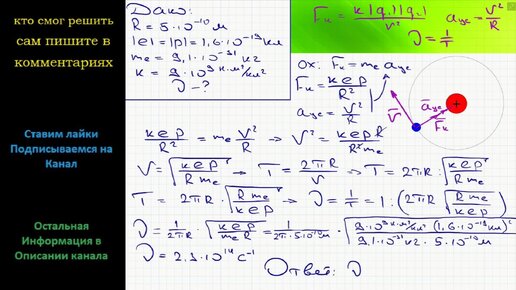 кто смог решить
сам пишите в
комментариях
Ставим лайки
Подписываемся на
Канал
Остальная
Информация в
Описании канала
Дано:
R = 5·10⁻¹⁰ м
|e| = |p| = 1,6·10⁻¹⁹ Кл
mₑ = 9,1·10⁻³¹ кг
k = 9·10⁹ Н·м²/Кл²
ν - ?
Fₖ = k|q₁||q₂|/r² a_цс = v²/R
ν = 1/T
ох: Fₖ = mₑ a_цс
Fₖ = kep/R²
a_цс = v²/R
v⃗ a⃗_цс F⃗ₖ +
kep/R² = mₑ v²/R → v² = kepR/R²mₑ
v = √(kep/Rmₑ) → T = 2πR/v → T = 2πR : √(kep/Rmₑ)
T = 2πR · √(Rmₑ/kep) → ν = 1/T = 1 : (2πR √(Rmₑ/kep))
ν = 1/2πR · √(kep/mₑR) = 1/(2π·5·10⁻¹⁰м) · √(9·10⁹ Н·м²/Кл² (1,6·10⁻¹⁹ Кл)²/(9,1·10⁻³¹ кг · 5·10⁻¹⁰ м))
ν = 2,3·10¹⁴ с⁻¹
Ответ: ν